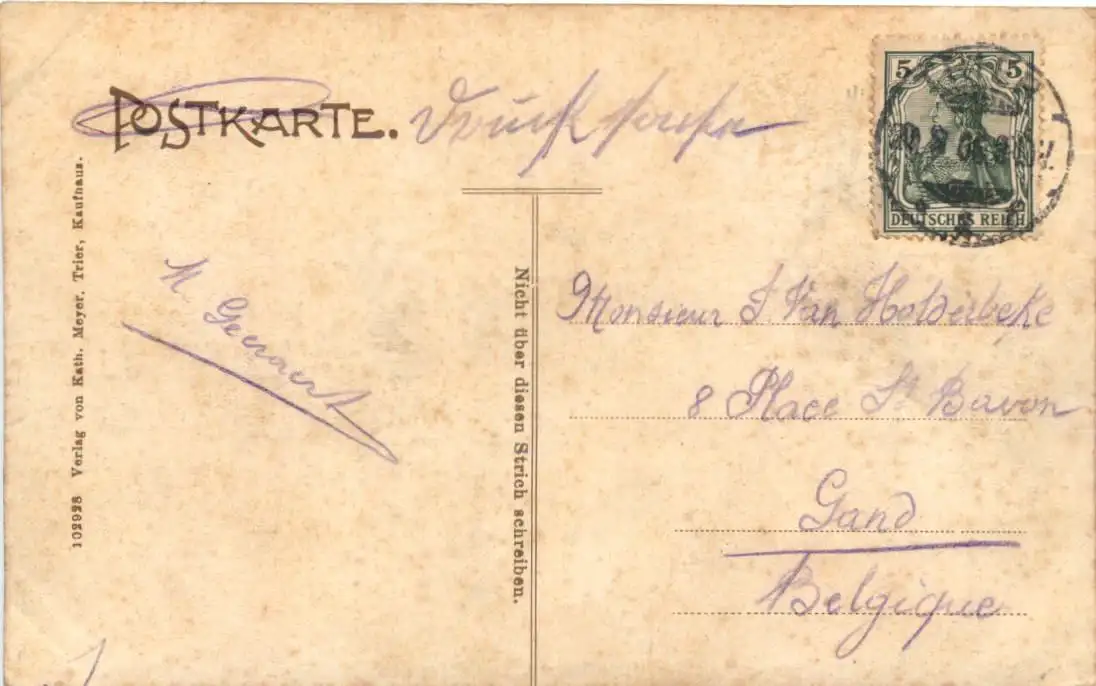 POSTKARTE. Drucksache
5 5
DEUTSCHES REICH
102928 Verlag von Kath. Meyer, Trier, Kaufhaus.
M. Geeraert
Nicht über diesen Strich schreiben.
Monsieur J. Van Holderbeke
8 Place St Bavon
Gand
Belgique